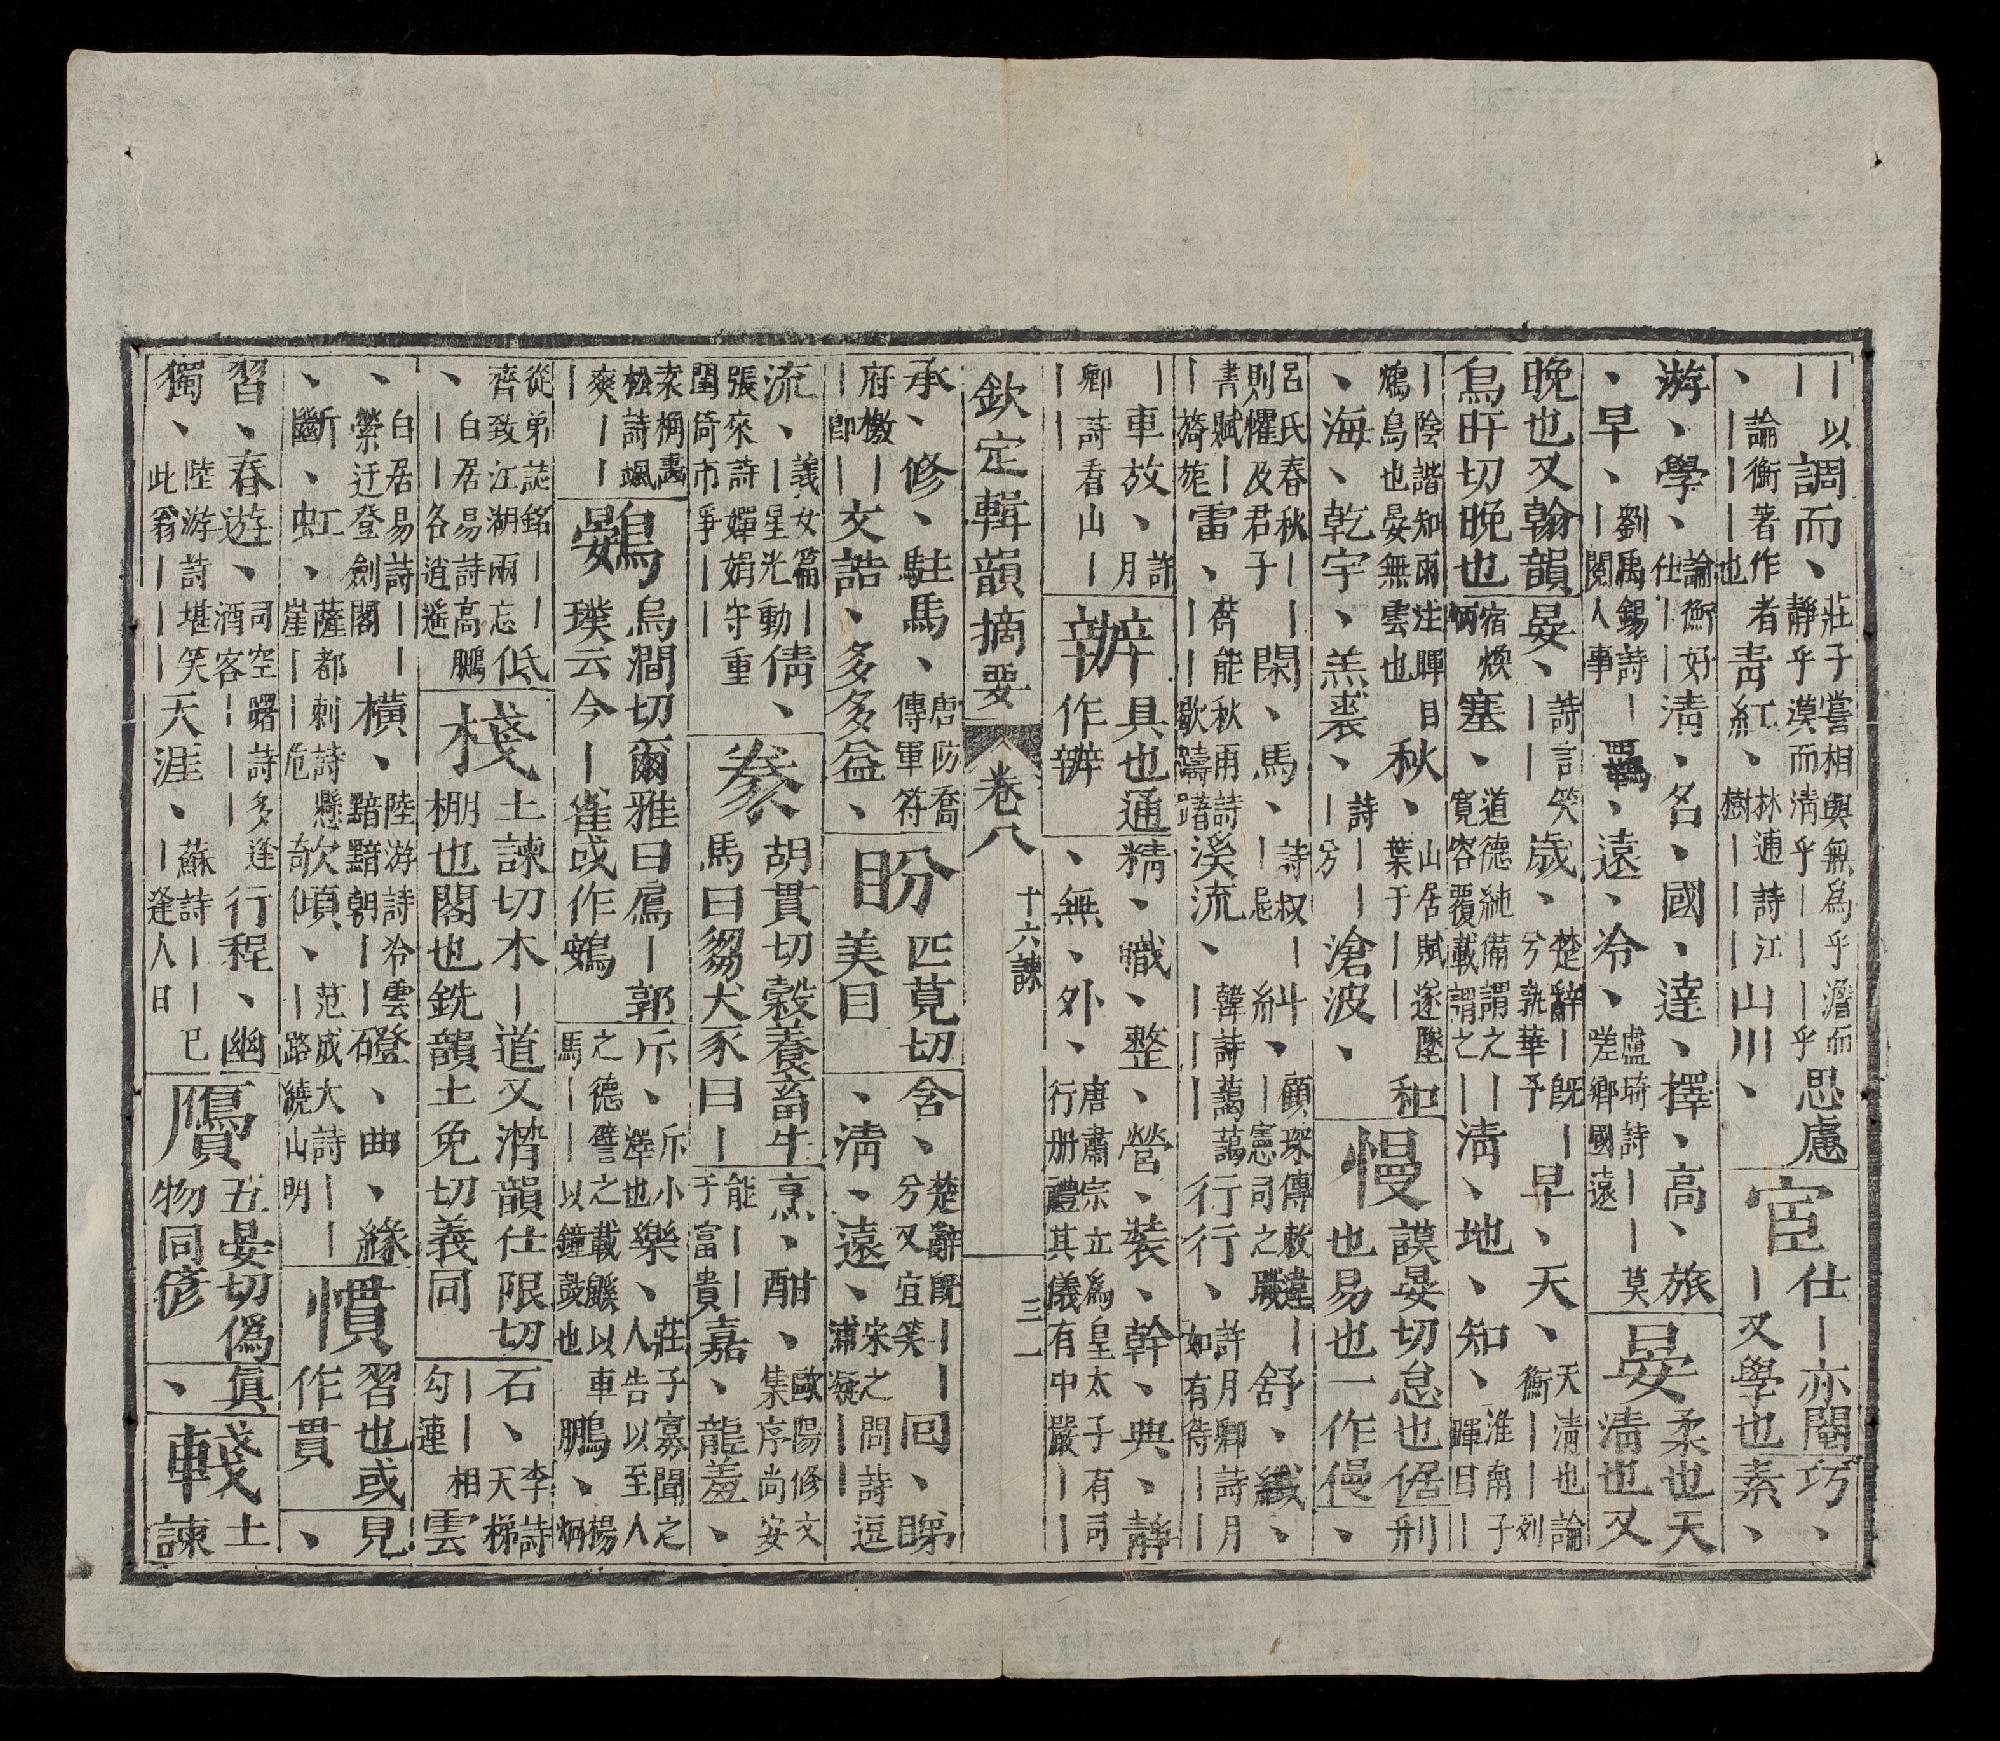 ||以調而、莊子嘗相與無為乎澹而靜乎漠而清乎||乎思慮
、論衡著作者|||也青紅、林逋詩江樹||山川、
宦仕|亦閹|又學也
巧、素、
游、學、論衡好仕||清、名、國、達、擇、高、旅
、早、劉禹錫詩|閱人事|羈、遠、冷、盧琦詩||嗟鄉國遠|莫
晏柔也天清也又
晚也又翰韻烏旰切晚也
晏、詩言笑||歲、楚辭|既|兮孰華予早、天、天清也論衡||列
宿煥炳塞、道德純備謂之||寬容覆載謂之清、地、知、淮南子暉日|
|陰諧知雨注暉目鴆鳥也晏無雲也秋、山居賦遂墜葉于||和
、海、乾宇、羔裘、詩||兮滄波、
慢謨晏切怠也倨也易也一作僈
刑、
呂氏春秋|則懼及君子|閑、馬、詩叔||忌糾、顧琛傳敕違|憲司之職舒、纖、
書賦||旖旎雷、舊能秋雨詩||歇躊躇溪流、韓詩藹藹|||行行、許月卿詩月如有待||
|車放、許月卿詩看山|||
辦具也通作辧
精、職、整、營、裝、幹、典、靜
、無、外、唐肅宗立為皇太子有司行册禮其儀有中嚴||
欽定輯韻摘要 卷八 十六諫 三一
承、修、駐馬、唐防喬傳軍符
府檄||即|文誥、多多益、
盼匹莧切美目
含、楚辭既||兮又宜笑回、睇
、清、遠、宋之問詩逗浦凝||
流、義女篇||星光動倩、
張來詩嬋娟守重閨倚市爭||
豢胡貫切穀養畜牛馬曰芻犬豕曰|
烹、酣、歐陽修文集序尚安
能||于富貴嘉、龍羞、
袁桷畫松詩颯爽||
鷃烏澗切爾雅曰鳸|郭璞云今|雀或作鴳
斥、斥小澤也樂、莊子寡聞之人告以至人
之德譬之載鼷以車馬|以鐘鼓也鵬、楊炯
從弟誌銘||齊致江湖兩忘低
、白居易詩高鵬||各逍遙
棧土諫切木|道又潸韻仕限切棚也閣也銑韻土免切義同
石、李詩天梯||相勾連雲
、白居易詩||縈迂登劍閣橫、陸游詩冷雲黯黯朝||磴、曲、緣
斷、虹、薩都剌詩懸崖||危欹傾、范成大詩||路繞山明
慣習也或作貫
見、
習、春遊、司空曙詩多逢酒客||行程、幽
獨、陸游詩堪笑此翁|||天涯、蘇詩||已|逢人日
贋五晏切偽物同偐
真、
輚士諫